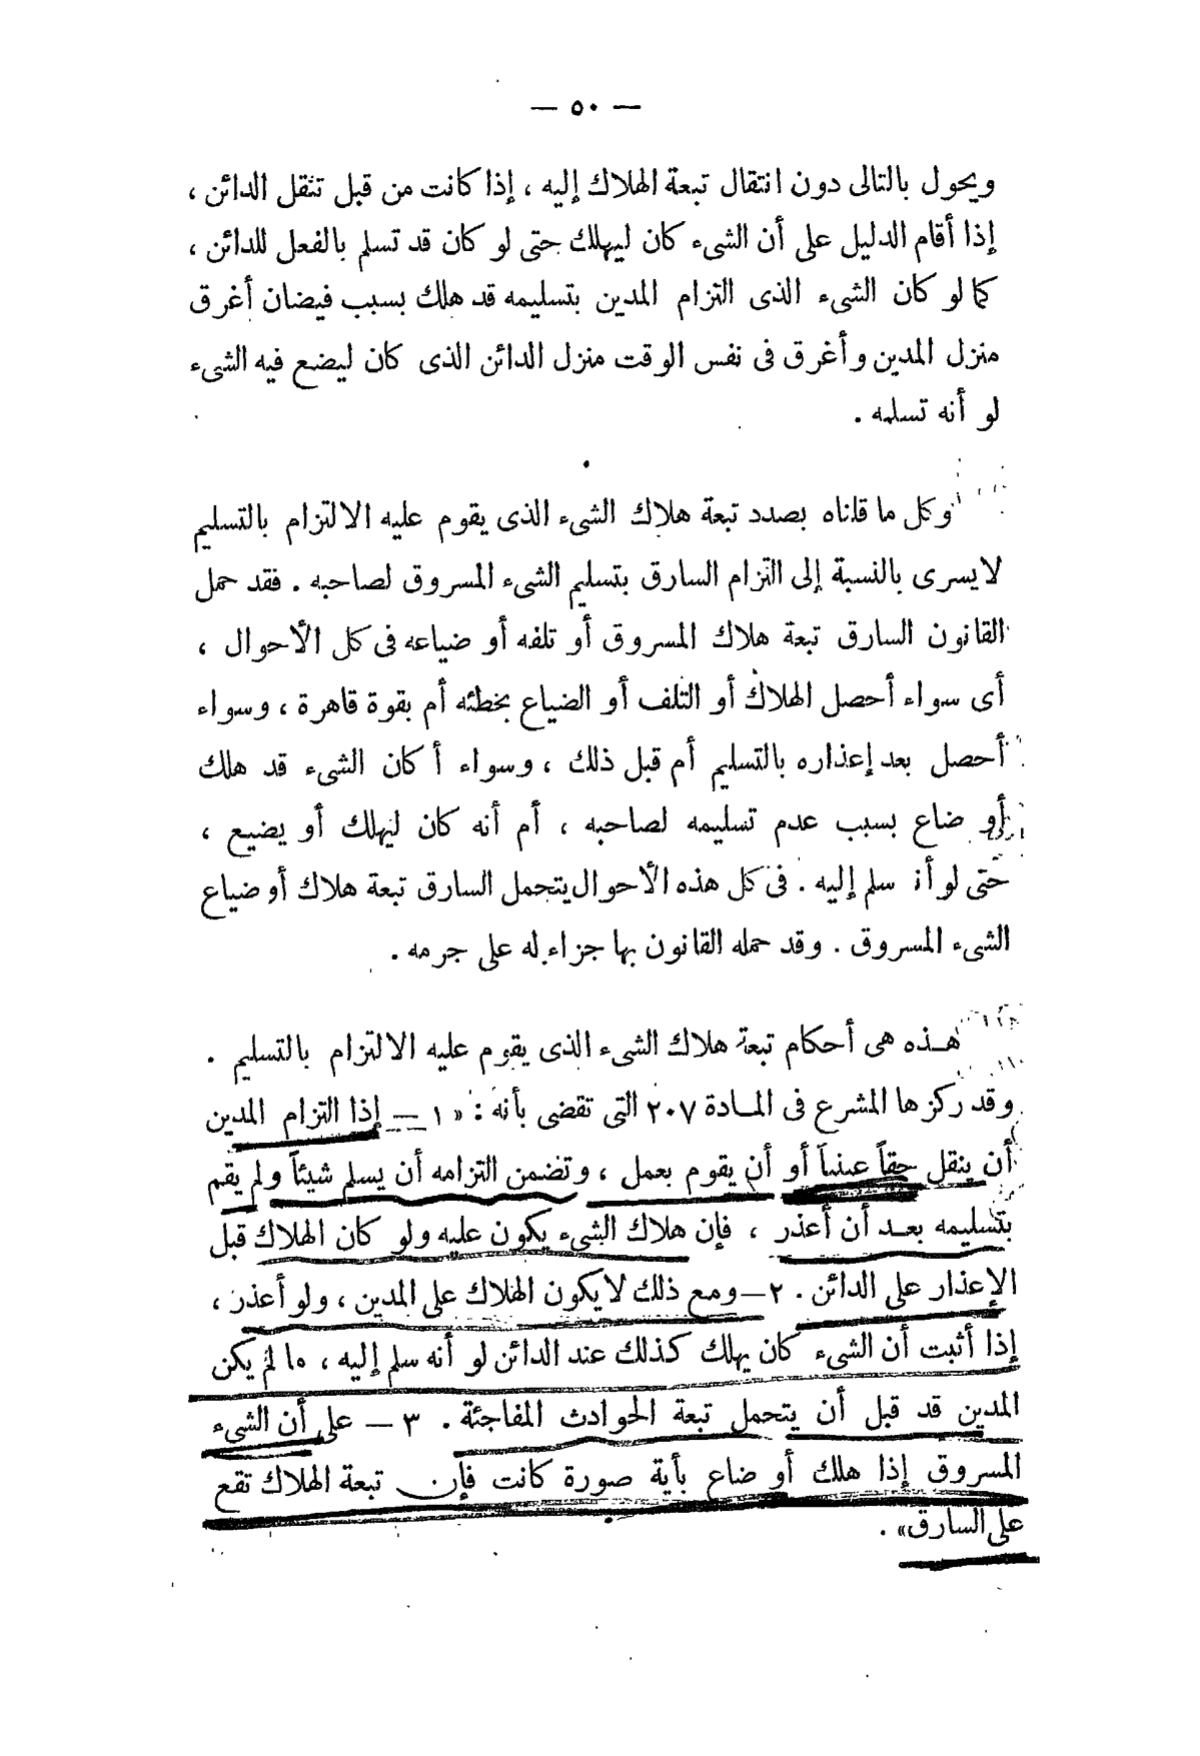 — ٥٠ —
ويحول بالتالى دون انتقال تبعة الهلاك إليه ، إذا كانت من قبل تثقل الدائن ،
إذا أقام الدليل على أن الشىء كان ليهلك حتى لو كان قد تسلم بالفعل للدائن ،
كما لو كان الشىء الذى التزام المدين بتسليمه قد هلك بسبب فيضان أغرق
منزل المدين وأغرق فى نفس الوقت منزل الدائن الذى كان ليضع فيه الشىء
لو أنه تسلمه .
وكل ما قلناه بصدد تبعة هلاك الشىء الذى يقوم عليه الالتزام بالتسليم
لايسرى بالنسبة إلى التزام السارق بتسليم الشىء المسروق لصاحبه . فقد حمل
القانون السارق تبعة هلاك المسروق أو تلفه أو ضياعه فى كل الأحوال ،
أى سواء أحصل الهلاك أو التلف أو الضياع بخطئه أم بقوة قاهرة ، وسواء
أحصل بعد إعذاره بالتسليم أم قبل ذلك ، وسواء أكان الشىء قد هلك
أو ضاع بسبب عدم تسليمه لصاحبه ، أم أنه كان ليهلك أو يضيع ،
حتى لو سلم إليه . فى كل هذه الأحوال يتحمل السارق تبعة هلاك أو ضياع
الشىء المسروق . وقد حمله القانون بها جزاء له على جرمه .
هـذه هى أحكام تبعة هلاك الشىء الذى يقوم عليه الالتزام بالتسليم .
وقد ركزها المشرع فى المـادة ٢٠٧ التى تقضى بأنه : « ١ — إذا التزام المدين
أن ينقل حقاً عينياً أو أن يقوم بعمل ، وتضمن التزامه أن يسلم شيئاً ولم يقم
بتسليمه بعـد أن أعذر ، فإن هلاك الشىء يكون عليه ولو كان الهلاك قبل
الإعذار على الدائن . ٢ — ومع ذلك لايكون الهلاك على المدين ، ولو أعذر ،
إذا أثبت أن الشىء كان يهلك كذلك عند الدائن لو أنه سلم إليه ، ما لم يكن
المدين قد قبل أن يتحمل تبعة الحوادث المفاجئة . ٣ — على أن الشىء
المسروق إذا هلك أو ضاع بأية صورة كانت فإن تبعة الهلاك تقع
على السارق» .